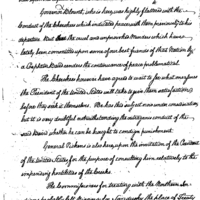 Governor Blount, who is here, was highly flattered with the
conduct of the Cherokees which indicated peace with them previously to his
departure. But that the cruel and unprovoked Murders which have
lately been committed upon some of our best friends of that Nation by
a Captain Beard renders the continuance of peace problematical.
The Cherokees however have agreed to wait to see what measures
the President of the United States will take to give them satisfaction,
before they seek it themselves. He has this subject now under consideration
but it is very doubtful notwithstanding the outrageous conduct of the
said Beard whether he can be brought to condign punishment.
General Pickens is also here, upon the invitation of the President
of the United States for the purpose of consulting him relatively to the
impending hostilities of the Creeks.
The Commissioners for treating with the Northern In-